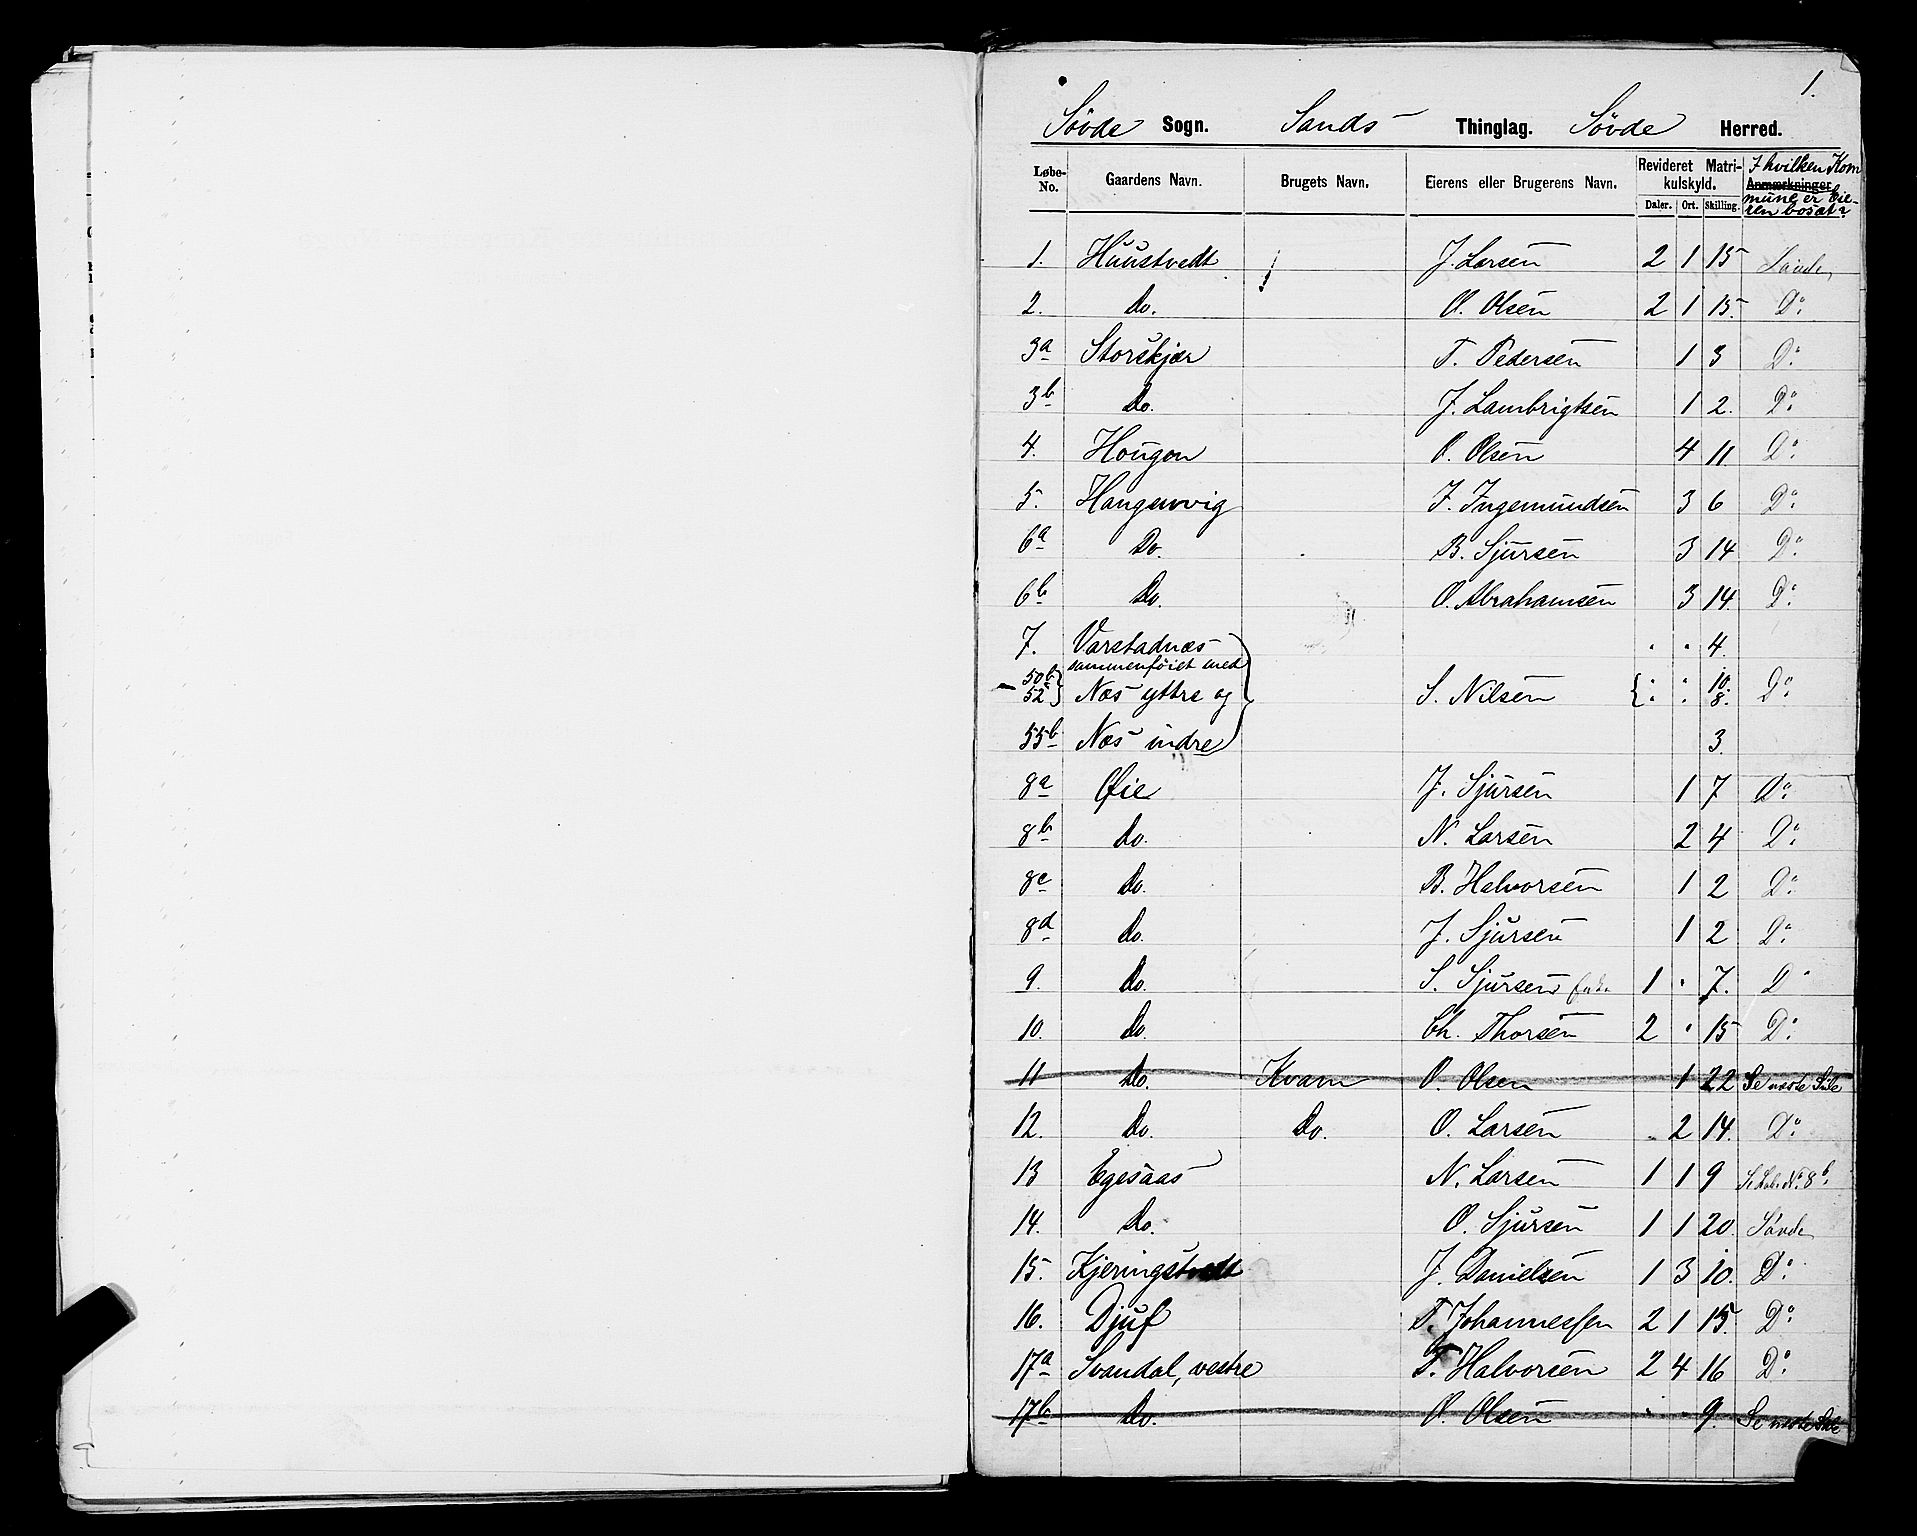 1.
Søvde Sogn. Sands Thinglag. Søvde Herred.
Løbe-No. Gaardens Navn. Brugets Navn. Eierens eller Brugerens Navn. Revideret Matrikulskyld. Daler. Ort. Skilling. Anmærkninger I hvilken Kommune er Eieren bosat?
1. Huustvedt J. Larsen 2 1 15 Søvde
2. Do. O. Olsen 2 1 15. Do.
3a Storskjær T. Pedersen 1 3 Do.
3b Do. J. Lambrigtsen 1 2. Do.
4. Hougen O. Olsen 4 11. Do.
5. Haugenvig J. Ingemundsen 3 6 Do.
6a Do. B. Sjursen 3 14 Do.
6b Do. O. Abrahamsen 3 14. Do.
7. Varstadnæs " " 4.
sammenføiet med
50b 52 Næs yttre og S. Nilsen " " 10. 8. Do.
55b Næs indre 3.
8a Øie J. Sjursen 1 7 Do.
8b Do. N. Larsen 2 4 Do.
8c Do. B. Halvorsen 1 2 Do.
8d Do. J. Sjursen 1 2 Do.
9. Do. S. Sjursen 1 " 7. Do
10. Do. Ch. Thorsen 2 " 15 Do.
11 Do. Kvam O. Olsen 1 22 Se næste Side
12. Do. Do. O. Larsen " 2 14. Do.
13 Egesaas N. Larsen 1 1 9 Se Løb. No. 8b.
14. Do. O. Sjursen 1 1 20. Søvde
15. Kjeringstvedt J. Danielsen 1 3 10. Do.
16. Djuf T. Johannessen 2 1 15. Do.
17a Svandal, vestre T. Halvorsen 2 4 16 Do.
17b Do. O. Olsen " " 9. Se næste Side